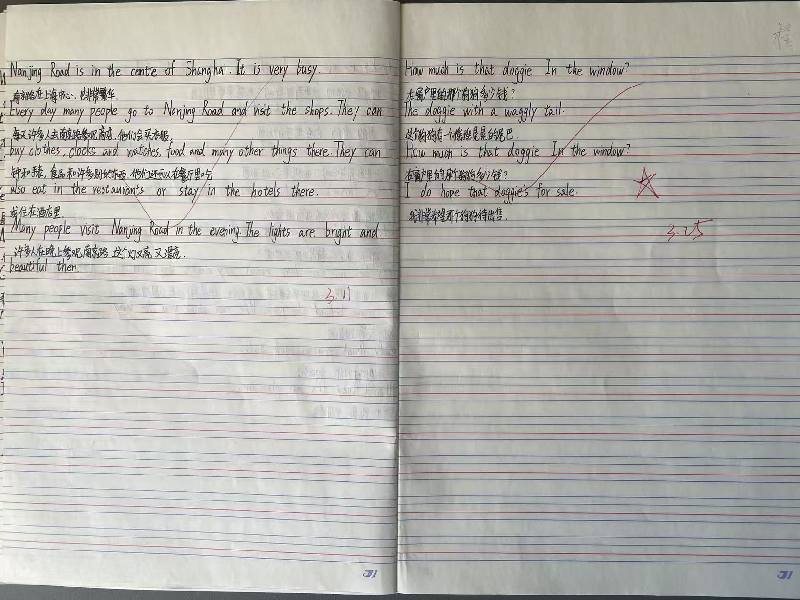 Nanjing Road is in the centre of Shangha. It is very busy.
南京路在上海市中心. 它非常繁华.
Every day many people go to Nanjing Road and visit the shops. They can
每天许多人去南京路参观商店. 他们会买衣服,
buy clothes, clocks and watches, food and many other things there. They can
钟和手表, 食品和许多别的东西. 他们还可以在餐厅里吃
also eat in the restaurants or stay in the hotels there.
或住在酒店里.
Many people visit Nanjing Road in the evening. The lights are bright and
许多人在晚上参观南京路. 这个灯又亮又漂亮.
beautiful then.
3.11
How much is that doggie In the window?
在窗户里的那个狗狗多少钱?
The doggie with a waggly tail.
这个狗狗有一个摇摇晃晃的尾巴.
How much is that doggie In the window?
在窗户里的那个狗狗多少钱?
I do hope that doggie's for sale.
我非常希望那个狗狗待出售.
3.25